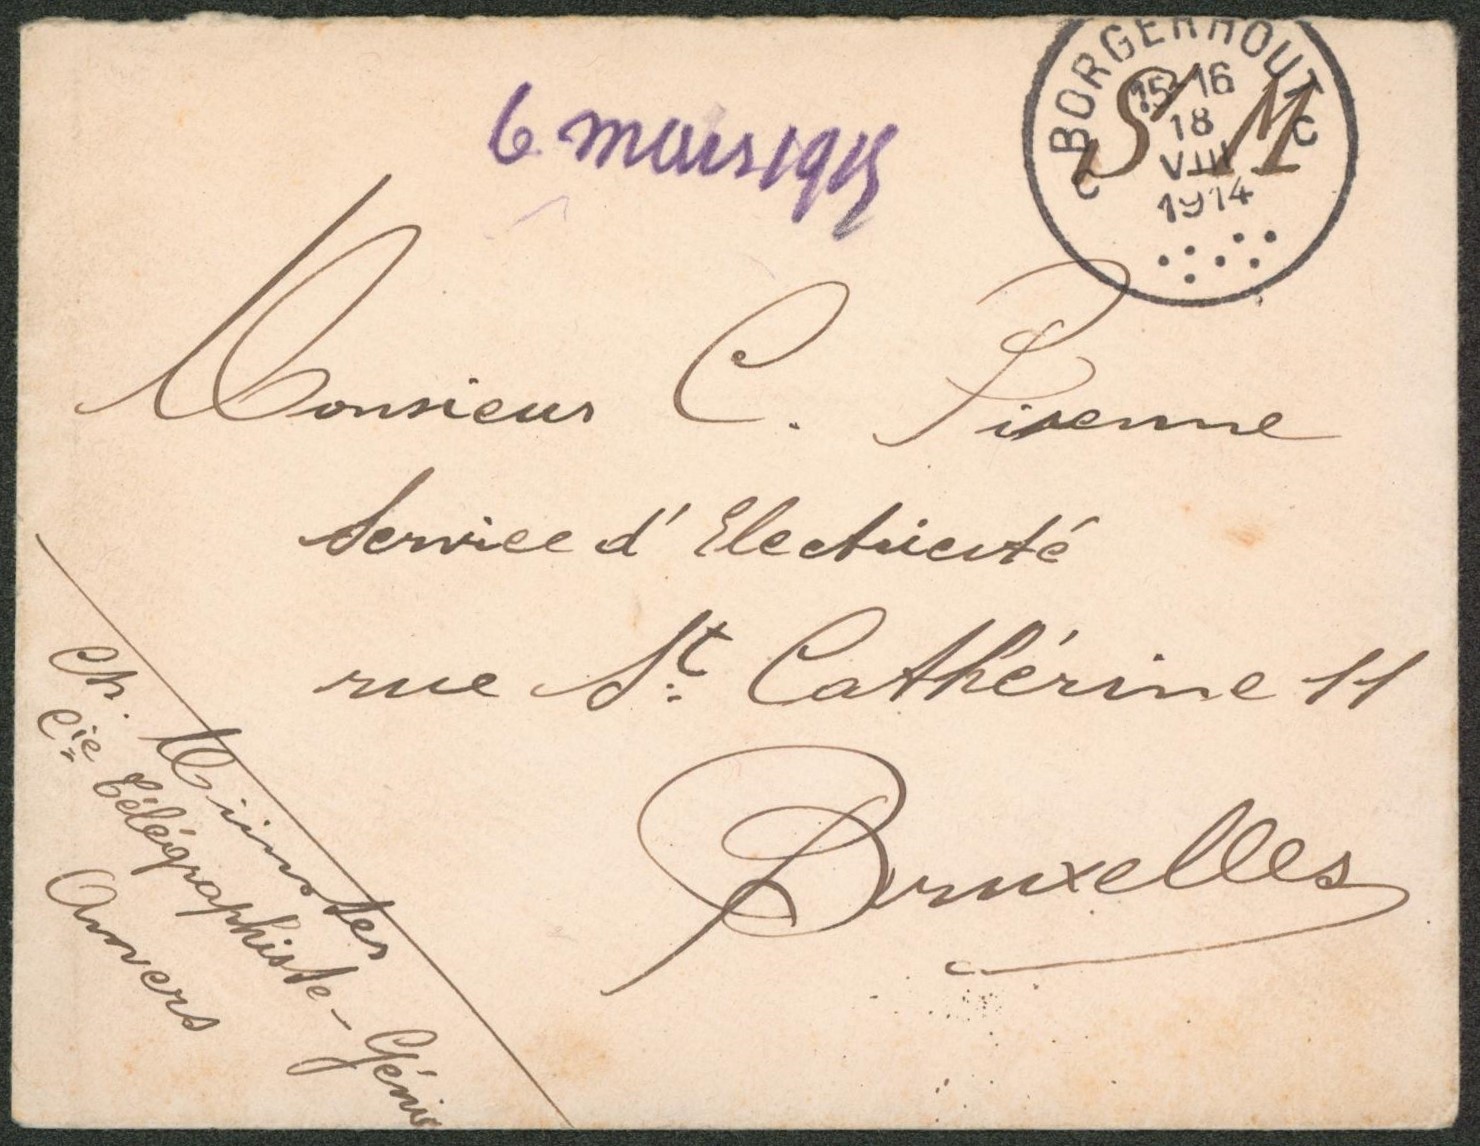 BORGERHOUT
15-16
18
VIII
1914
C C
S M
6 mars 1915
Monsieur C. Pirenne
Service d'Electricité
rue St. Cathérine 11
Bruxelles
Ch.
Cie Télégraphiste - Génie
Anvers